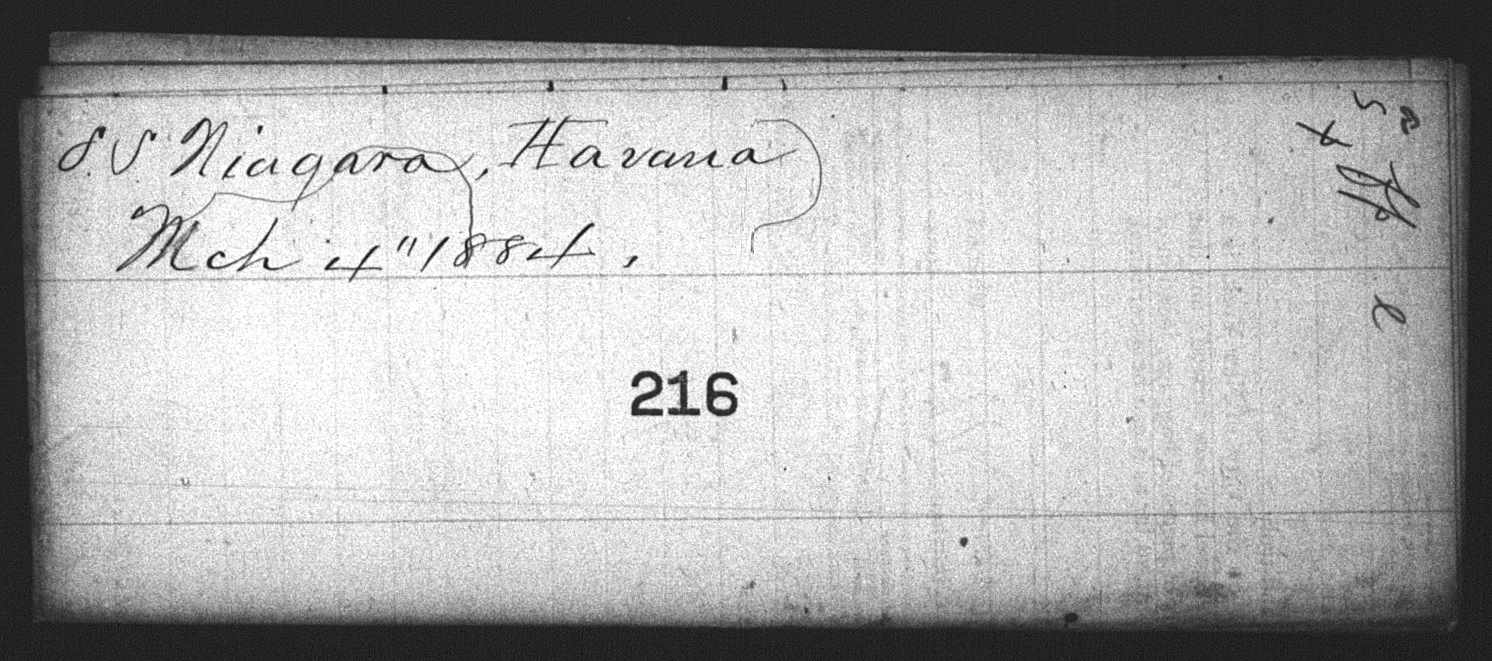 S.S. Niagara, Havana
Mch 4" 1884,
216